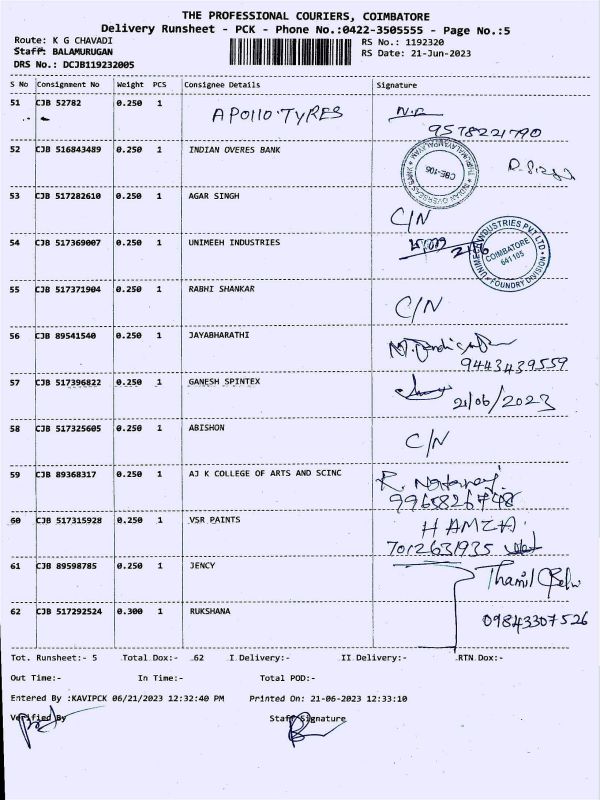 THE PROFESSIONAL COURIERS, COIMBATORE
Delivery Runsheet - PCK - Phone No.:0422-3505555 - Page No.:5
Route: K G CHAVADI RS No.: 1192320
Staff: BALAMURUGAN RS Date: 21-Jun-2023
DRS No.: DCJB119232005
S No Consignment No Weight PCS Consignee Details Signature
51 CJB 52782 0.250 1 APOLLO TYRES
9578221790
52 CJB 516843489 0.250 1 INDIAN OVERES BANK
INDIAN OVERSEAS BANK
CBE-106
53 CJB 517282610 0.250 1 AGAR SINGH C/N
54 CJB 517369007 0.250 1 UNIMEEH INDUSTRIES
UNIMEEH INDUSTRIES PVT LTD
COIMBATORE
641105
FOUNDRY DIVISION
55 CJB 517371904 0.250 1 RABHI SHANKAR C/N
56 CJB 89541540 0.250 1 JAYABHARATHI
9443439559
57 CJB 517396822 0.250 1 GANESH SPINTEX
21/06/2023
58 CJB 517325605 0.250 1 ABISHON C/N
59 CJB 89368317 0.250 1 AJ K COLLEGE OF ARTS AND SCINC R. Nataraj
9965826748
60 CJB 517315928 0.250 1 VSR PAINTS HAMZA
7012631935
61 CJB 89598785 0.250 1 JENCY Thamil Selvi
62 CJB 517292524 0.300 1 RUKSHANA 09843307526
Tot. Runsheet:- 5 Total Dox:- 62 I Delivery:- II Delivery:- RTN Dox:-
Out Time:- In Time:- Total POD:-
Entered By :KAVIPCK 06/21/2023 12:32:40 PM Printed On: 21-06-2023 12:33:10
Verified By Staff Signature